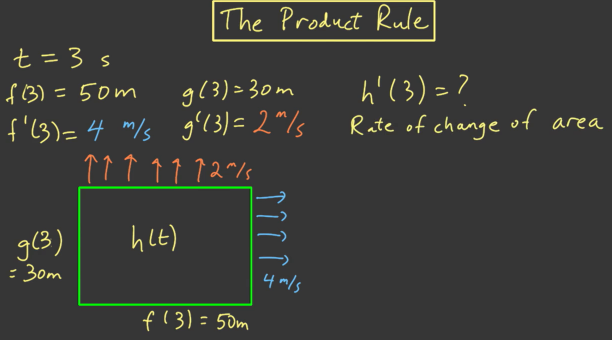 The Product Rule
t = 3 s
f(3) = 50m
g(3) = 30m
h'(3) = ?
f'(3) = 4 m/s
g'(3) = 2 m/s
Rate of change of area
2 m/s
g(3)
= 30m
h(t)
4 m/s
f(3) = 50m